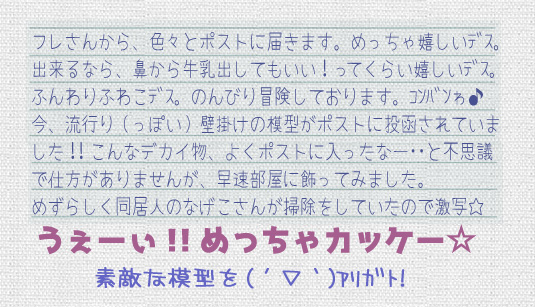 フレさんから、色々とポストに届きます。めっちゃ嬉しいデス。
出来るなら、鼻から牛乳出してもいい！ってくらい嬉しいデス。
ふんわりふわこデス。のんびり冒険しております。コンバンゎ♪
今、流行り（っぽい）壁掛けの模型がポストに投函されていま
した!!こんなデカイ物、よくポストに入ったなー・・と不思議
で仕方がありませんが、早速部屋に飾ってみました。
めずらしく同居人のなげこさんが掃除をしていたので激写☆
うぇーぃ!!めっちゃカッケー☆
素敵な模型を(´▽｀)アリガト!